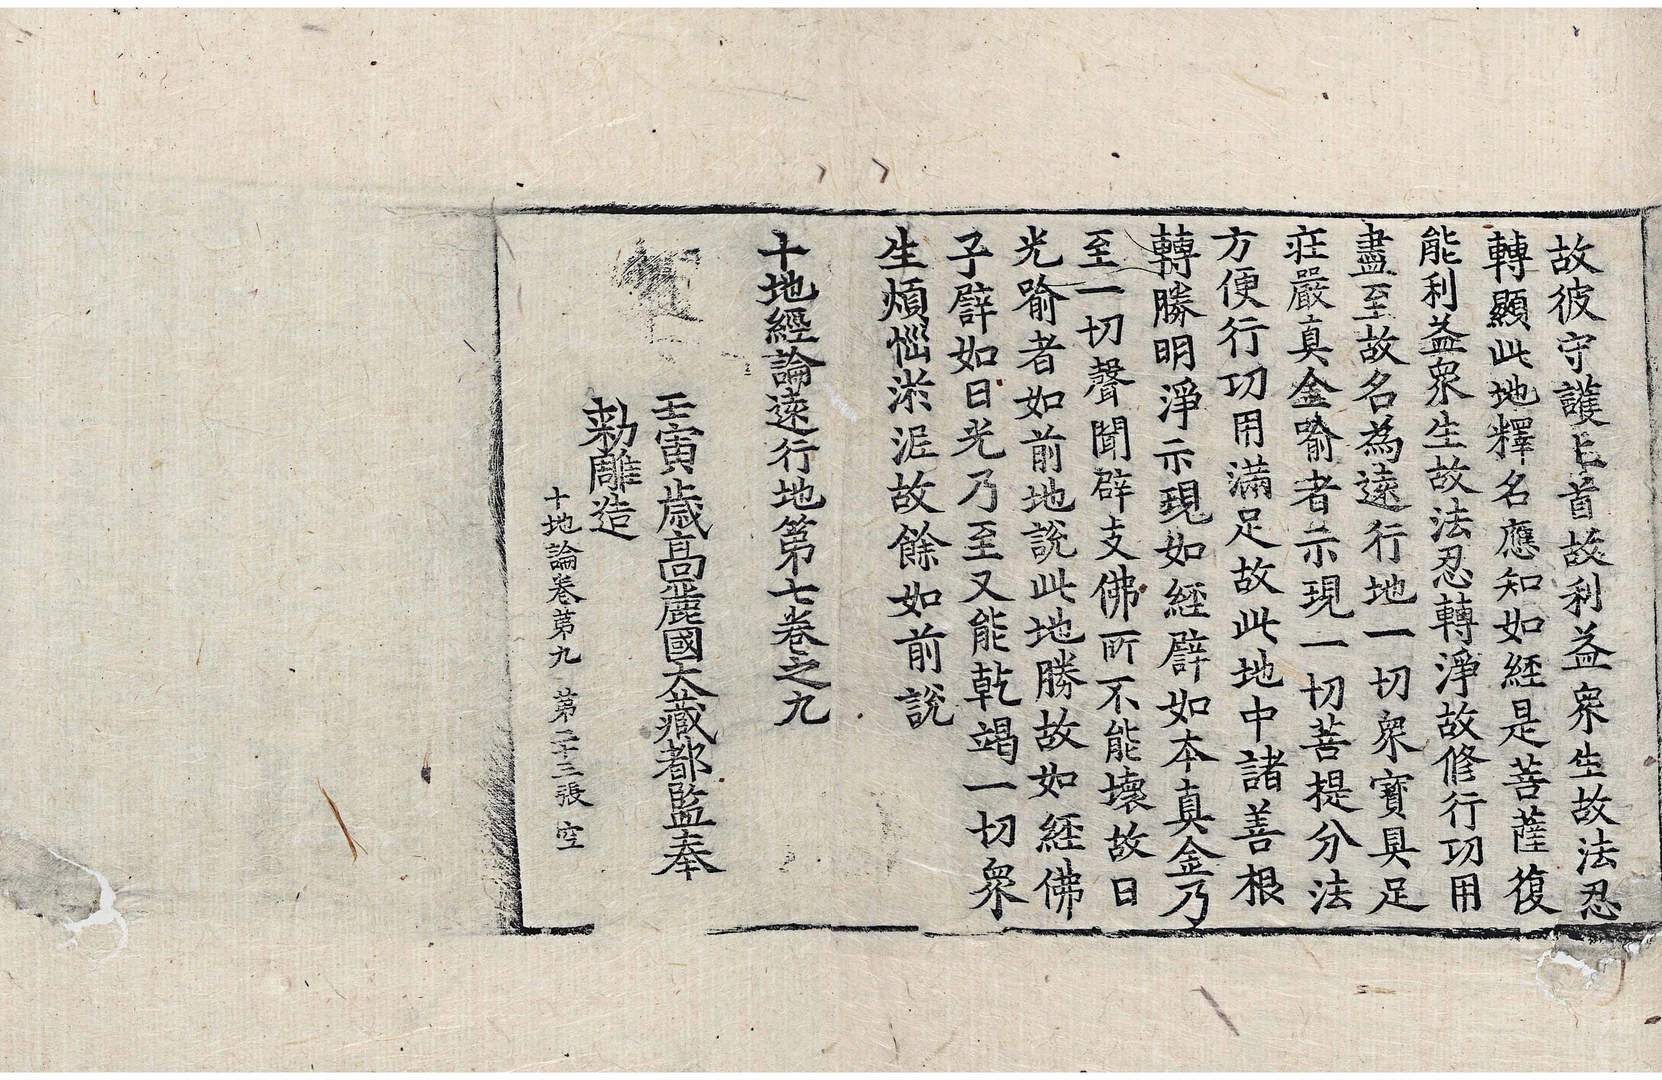 故彼守護上首故利益衆生故法忍
轉顯此地釋名應知如經是菩薩復
能利益衆生故法忍轉淨故修行功用
盡至故名為遠行地一切衆寶具足
莊嚴真金喻者示現一切菩提分法
方便行功用滿足故此地中諸善根
轉勝明淨示現如經譬如本真金乃
至一切聲聞辟支佛所不能壞故日
光喻者如前地說此地勝故如經佛
子譬如日光乃至又能乾竭一切衆
生煩惱淤泥故餘如前說
十地經論遠行地第七卷之九
壬寅歲高麗國大藏都監奉
勅雕造
十地論卷第九 第二十三張 空